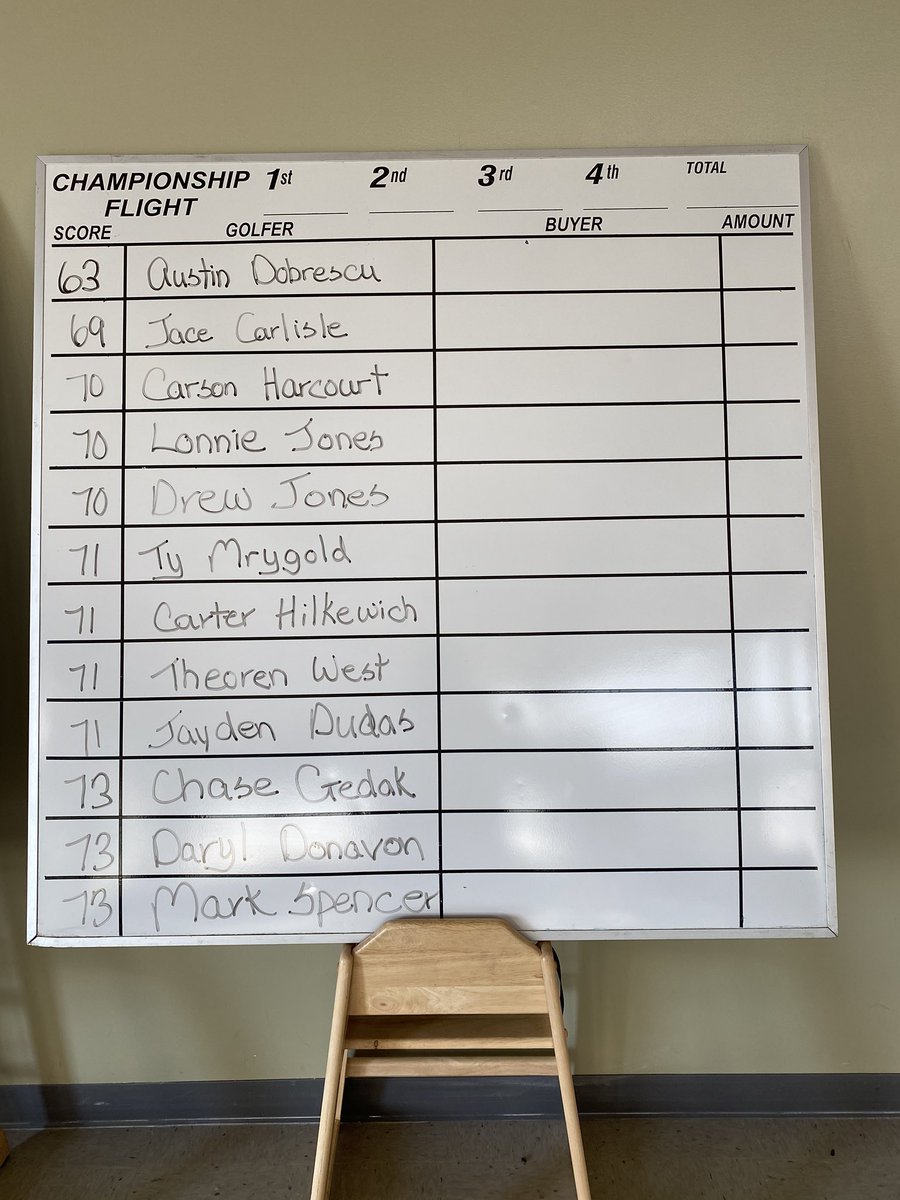 CHAMPIONSHIP 1st 2nd 3rd 4th TOTAL
FLIGHT
SCORE GOLFER BUYER AMOUNT
63 Austin Dobrescu
69 Jace Carlisle
70 Carson Harcourt
70 Lonnie Jones
70 Drew Jones
71 Ty Mrygold
71 Carter Hilkewich
71 Theoren West
71 Jayden Dudas
73 Chase Gedak
73 Daryl Donavon
73 Mark Spencer